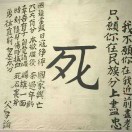 我不願你在我近前盡孝
只願你在民族分上盡忠
死
國難當頭日寇猙獰國家興亡
匹夫有分本欲服役奈過年齡
幸吾有子自覺請纓賜旗一面
時刻隨身傷時拭血死後裹身
勇往直前勿忘本分
父手諭